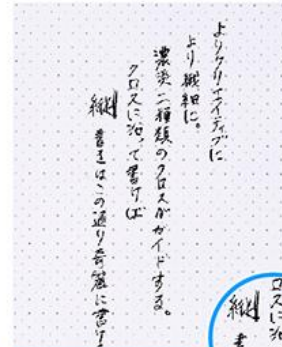 よりクリエイティブに
より繊細に。
濃淡二種類のクロスがガイドする。
クロスに沿って書けば
縦書きはこの通り奇麗に書ける
クロスに沿
縦
書